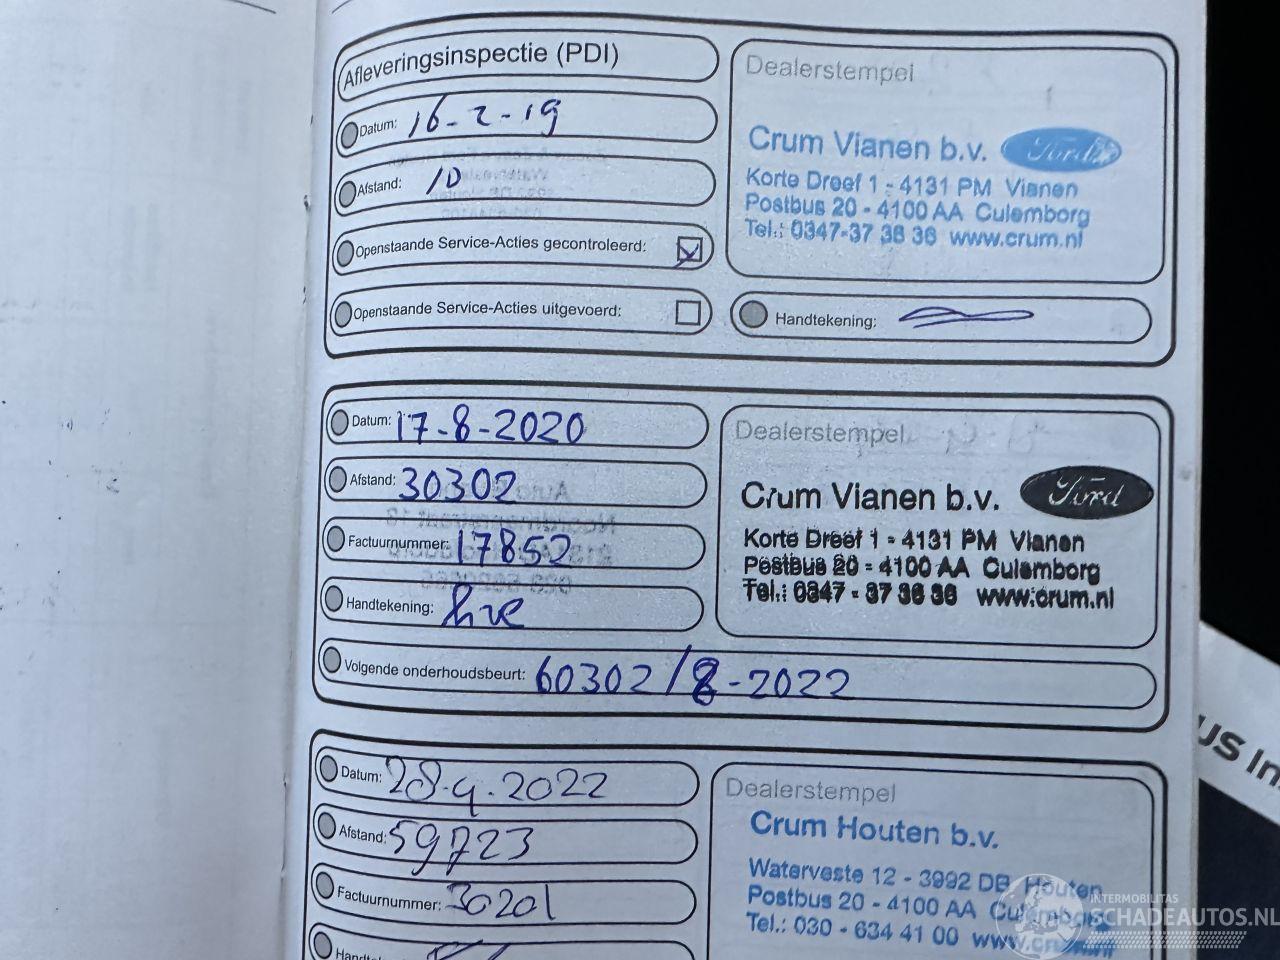 Afleveringsinspectie (PDI)
Datum: 16-2-19
Afstand: 10
Openstaande Service-Acties gecontroleerd:
Openstaande Service-Acties uitgevoerd:
Dealerstempel
Crum Vianen b.v. Ford
Korte Dreef 1 - 4131 PM Vianen
Postbus 20 - 4100 AA Culemborg
Tel.: 0347-37 36 36 www.crum.nl
Handtekening:
Datum: 17-8-2020
Afstand: 30302
Factuurnummer: 17852
Handtekening:
Dealerstempel
Crum Vianen b.v. Ford
Korte Dreef 1 - 4131 PM Vianen
Postbus 20 - 4100 AA Culemborg
Tel.: 0347 - 37 36 36 www.crum.nl
Volgende onderhoudsbeurt: 60302/8-2022
Datum: 28-9-2022
Afstand: 59723
Factuurnummer: 30201
Dealerstempel
Crum Houten b.v.
Waterveste 12 - 3992 DB Houten
Postbus 20 - 4100 AA Culemborg
Tel.: 030 - 634 41 00 www.crum.nl
INTERMOBILITAS
SCHADEAUTOS.NL